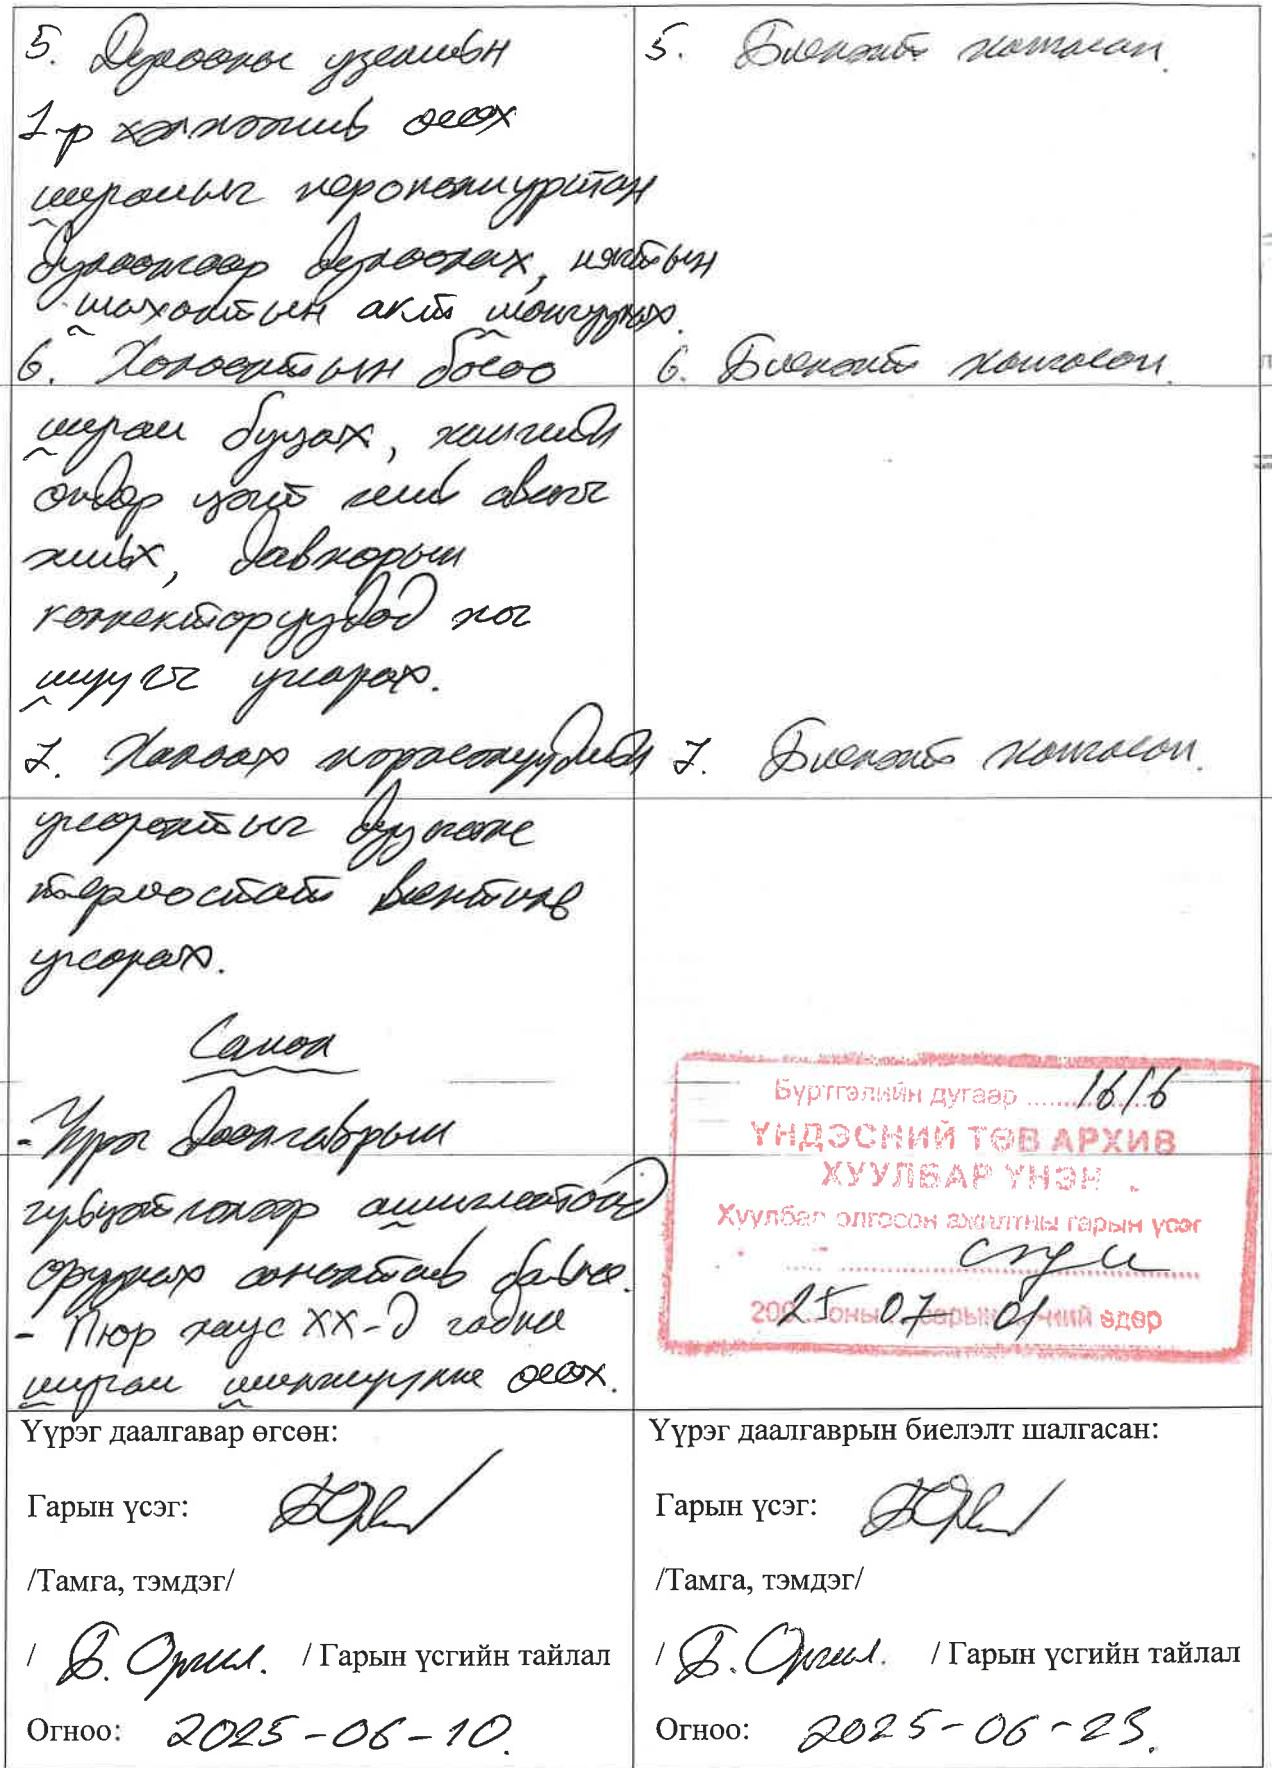 5. Дулааны узелийн
1-р хэлхээнив өгөх
шугамыг
дулаалгаар дулаалах, нягтын
шахалтын акт
6. Халаалтын босоо
шугам буцах, хамгийн
өндөр цэгт хий авагч
хийх, давхарын
коллекторуудад хог
шүүгч угсрах.
7. Халаах
угсралтыг дуусгаж
термостат вентиль
угсрах.
Санал
- Үүрэг даалгаврын
гүйцэтгэлээр ашиглалтад
оруулах саналтай байна.
- Пюр хаус ХХ-д гадна
шугам шилжүүлж өгөх.
5. Биелэлт хангасан.
6. Биелэлт хангасан.
7. Биелэлт хангасан.
Бүртгэлийн дугаар ........ 16/6
ҮНДЭСНИЙ ТӨВ АРХИВ
ХУУЛБАР ҮНЭН
Хуулбар олгосон ажилтны гарын үсэг
200 25 оны 07 сарын 01 ний өдөр
Үүрэг даалгавар өгсөн:
Гарын үсэг:
/Тамга, тэмдэг/
/ Б. Оргил. / Гарын үсгийн тайлал
Огноо: 2025-06-10.
Үүрэг даалгаврын биелэлт шалгасан:
Гарын үсэг:
/Тамга, тэмдэг/
/ Б. Оргил. / Гарын үсгийн тайлал
Огноо: 2025-06-23.